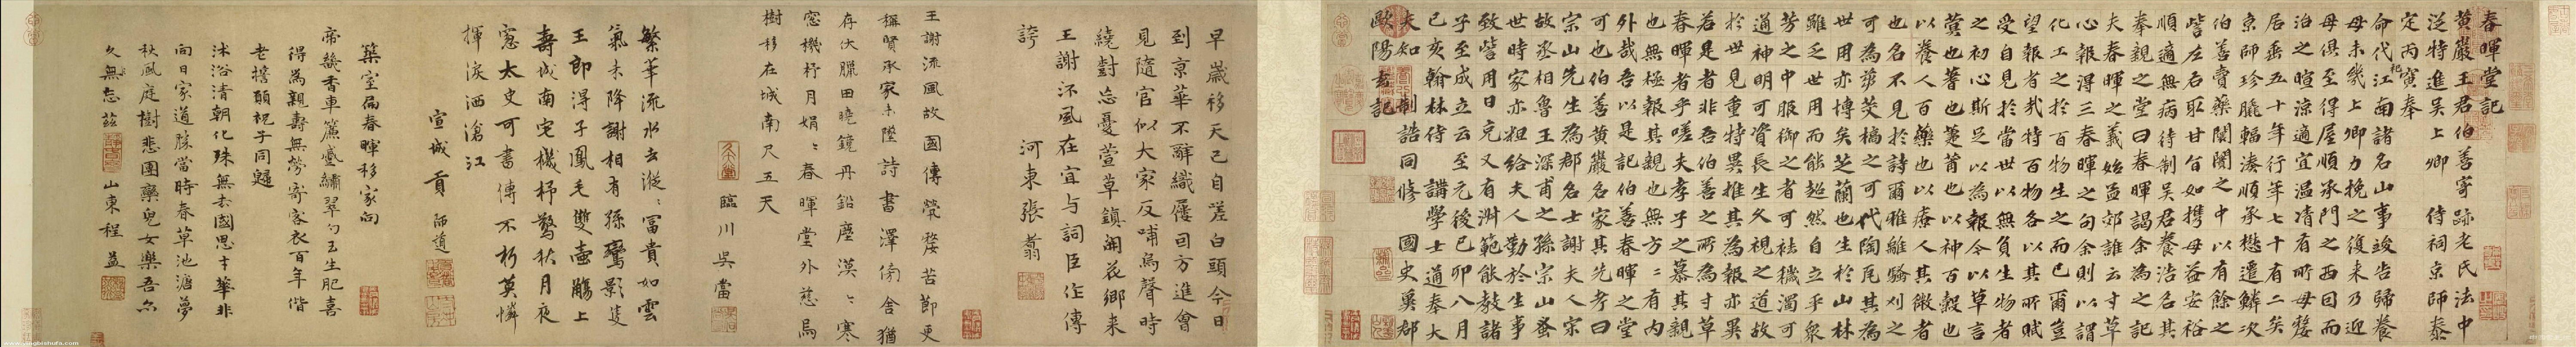 春暉堂記
黃巖王君伯善寄跡老氏法中
泛特進吳上卿 侍祠京師泰
定丙寅奉
命代江南諸名山事竣告歸養
母未幾上卿力挽之復来乃迎
母俱至得屋順承門之西因而
泊之暄涼適宜温凊有所母婺
居垂五十年行年七十有二矣
京師珍臙輻湊順承懋遷鱗次
伯善賣藥闤闠之中以有餘之
訾左右取甘旨如携母益安裕
順適無病待制吳君養浩名其
奉親之堂曰春暉謁余為之記
夫春暉之義始孟郊誰云寸草
心報得三春暉之句余則以謂
化工之於百物生之而已爾豈
望報者㦲特百物各以其所賦
受自見於當世以無負生物者
之初心斯足以為報令以草言
蓂也蓍也蓂莆也以神百穀也
以養人百藥也以療人其微者
也名不見於詩爾雅離騷刈之
可為蒭茭槁之可代陶尾其為
世用亦博矣芝蘭也生於山林
雖乏世用而能超然自立乎衆
芳之中服御之者可祛穢濁可
通神明可資長生久視之道故
於世見重特異推其為報亦異
若是者非吾伯善之所為寸草
春暉者乎嗟夫孝子之慕其親
也無極報其親也無方二有内
外㦲吾以是記伯善春暉之堂
可也伯善黄巖名家其先考曰
宗山先生為郡名士謝夫人宗
故丞相魯王深甫之孫宗山蚤
世時家亦粗給夫人勤於生事
致訾用日充又有淵範能教諸
子至成立云至元後己卯八月
己亥翰林侍講學士通奉大
夫知制誥同修 國史冀郡
歐陽玄記
早歲移天己自嗟白頭今日
到京華不辭織屨囙方進會
見隨官似大家反哺烏聲時
繞對忘憂萱草鎮開花鄉来
王謝怀風在宜与詞臣住傳
誇 河東張翥
王謝流風故國傳 煢嫠苦節更
稱賢承家未墜詩書澤俯舍猶
存伏臘田曉鏡丹鉛塵漠二寒
窓機杼月娟二春暉堂外慈烏
樹移在城南尺五天
臨川吳當
繁華流水去漇二冨貴如雲
氣未降謝相有孫鸞影隻
王郎淂子鳳毛雙壷觴上
壽城南宅機杼驚秋月夜
窻太史可書傳不朽莫憐
揮淚洒滄江
宣城貢師道
築室扁春暉移家向
帝畿香車簾幙繡翠勺玉生肥喜
得為親壽無勞寄客衣百年偕
老擔願祝子同歸
沐浴清朝化殊無去國思才華非
向日家道勝當時春草池溏夢
秋風庭樹悲團欒兒女樂吾亦
久無忘兹 山東程益